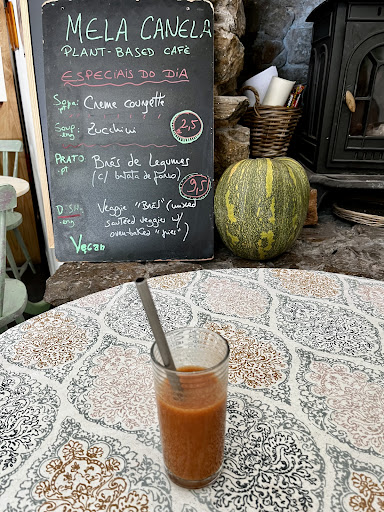 MELA CANELA
PLANT-BASED CAFÈ
ESPECIAIS DO DIA
Sopa: Creme courgette
-pt
Soup: Zucchini
-eng
2,5
PRATO: Brás de Legumes
-pt (c/ batata de forno)
9,5
DISH: Veggie "BRÁS" (mixed
-eng sauteed veggies w/
oven-baked "fries")
Vegan